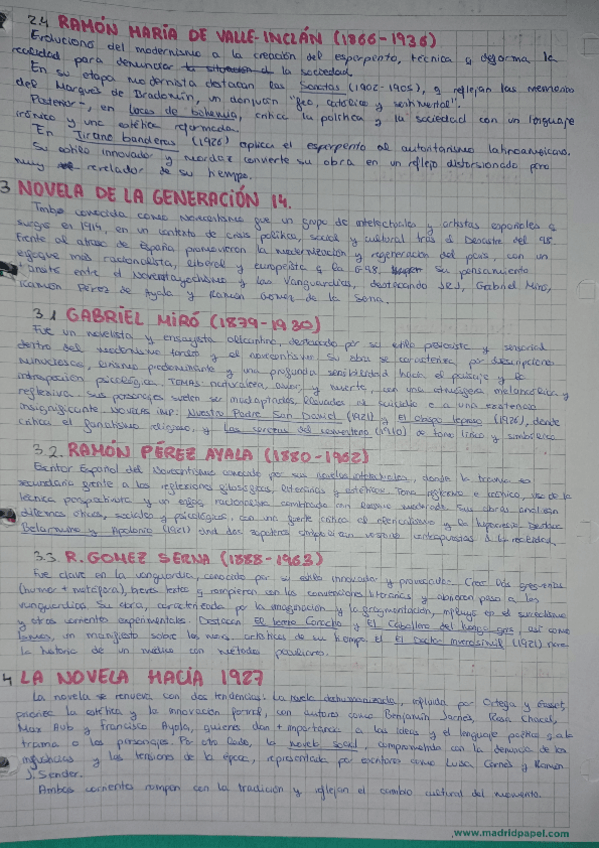 2.4 RAMÓN MARÍA DE VALLE-INCLÁN (1866-1936)
Evolucionó del modernismo a la creación del esperpento, técnica q deforma la
realidad para denunciar la sociedad.
En su etapa modernista destacan las Sonatas (1902-1905), q reflejan las memorias
del Marqués de Bradomín, un donjuan "feo, católico y sentimental".
Posterior-, en Luces de bohemia, critica la política y la sociedad con un lenguaje
irónico y una estética deformada.
En Tirano banderas (1926) aplica el esperpento al autoritarismo latinoamericano.
Su estilo innovador y mordaz convierte su obra en un reflejo distorsionado pero
muy revelador de su tiempo.
3 NOVELA DE LA GENERACIÓN 14.
Tmbn conocida como Novecentismo fue un grupo de intelectuales y artistas españoles q
surge en 1914, en un contexto de crisis política, social y cultural tras el Desastre del 98.
Frente al atraso de España promovieron la modernización y regeneración del país, con un
enfoque más racionalista, liberal y europeísta q la G98. Su pensamiento
entre el Novecentismo y las Vanguardias, destacando JRJ, Gabriel Miró,
Ramón Pérez de Ayala y Ramón Gómez de la Serna.
3.1 GABRIEL MIRÓ (1879-1930)
Fue un novelista y ensayista alicantino, destacado por su estilo preciosista y sensorial
dentro del modernismo tardío y el novecentismo. Su obra se caracteriza por descripciones
minuciosas, lirismo predominante y una profunda sensibilidad hacia el paisaje y la
introspección psicológica. TEMAS: naturaleza, amor y muerte, con una atmósfera melancólica y
reflexiva. Sus personajes suelen ser inadaptados, llevados al suicidio o a una existencia
insignificante. NOVELAS IMP: Nuestro Padre San Daniel (1921) y El obispo leproso (1926), donde
critica el fanatismo religioso, y Las cerezas del cementerio (1910) de tono lírico y simbólico
3.2. RAMÓN PÉREZ AYALA (1880-1962)
Escritor Español del Novecentismo conocido por sus novelas intelectuales, donde la trama es
secundaria frente a las reflexiones filosóficas, literarias y estéticas. Tono reflexivo e irónico, uso de la
técnica perspectivista y un enfoque racionalista combinado con lirismo moderado. Sus obras analizan
dilemas éticos, sociales y psicológicos, con una fuerte crítica al clericalismo y la hipocresía. Destaca
Belarmino y Apolonio (1921) dos zapateros simbolizan visiones contrapuestas d la realidad.
3.3. R. GOMEZ SERNA (1888-1963)
Fue clave en la vanguardia, conocido por su estilo innovador y provocador. Creó las greguerías
(humor + metáfora), breves textos q rompieron con las convenciones literarias y abrieron paso a las
vanguardias. Su obra, caracterizada por la imaginación y la fragmentación, influye en el surrealismo
y otras corrientes experimentales. Destacan El Torero Caracho y El Caballero del hongo gris, así como
Ismos, un manifiesto sobre los movs. artísticos de su tiempo. El Doctor inverosímil (1921) narra
la historia de un médico con métodos peculiares.
4 LA NOVELA HACÍA 1927
La novela se renueva con dos tendencias: La novela deshumanizada, influida por Ortega y Gasset,
prioriza la estética y la innovación formal, con autores como Benjamín Jarnés, Rosa Chacel,
Max Aub y Francisco Ayala, quienes dan + importancia a las ideas y el lenguaje poético q a la
trama o los personajes. Por otro lado, la novela social, comprometida con la denuncia de las
injusticias y las tensiones de la época, representada por escritores como Luisa Carnés y Ramón
J. Sender.
Ambas corrientes rompen con la tradición y reflejan el cambio cultural del momento.
www.madridpapel.com